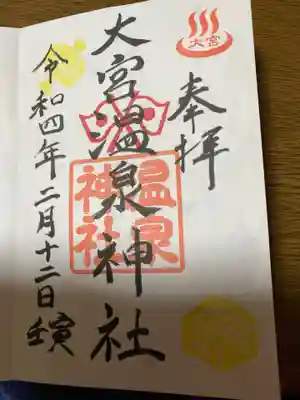 大宮
奉拝
大宮温泉神社
温泉
神社
令和四年二月十二日壬寅